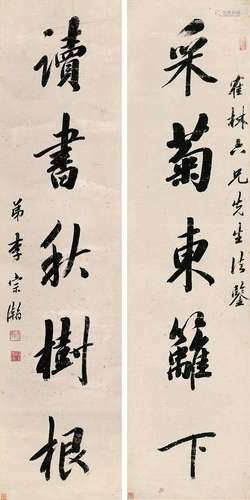 崔林六兄先生法鑒
采菊東籬下
讀書秋樹根
弟李宗瀚